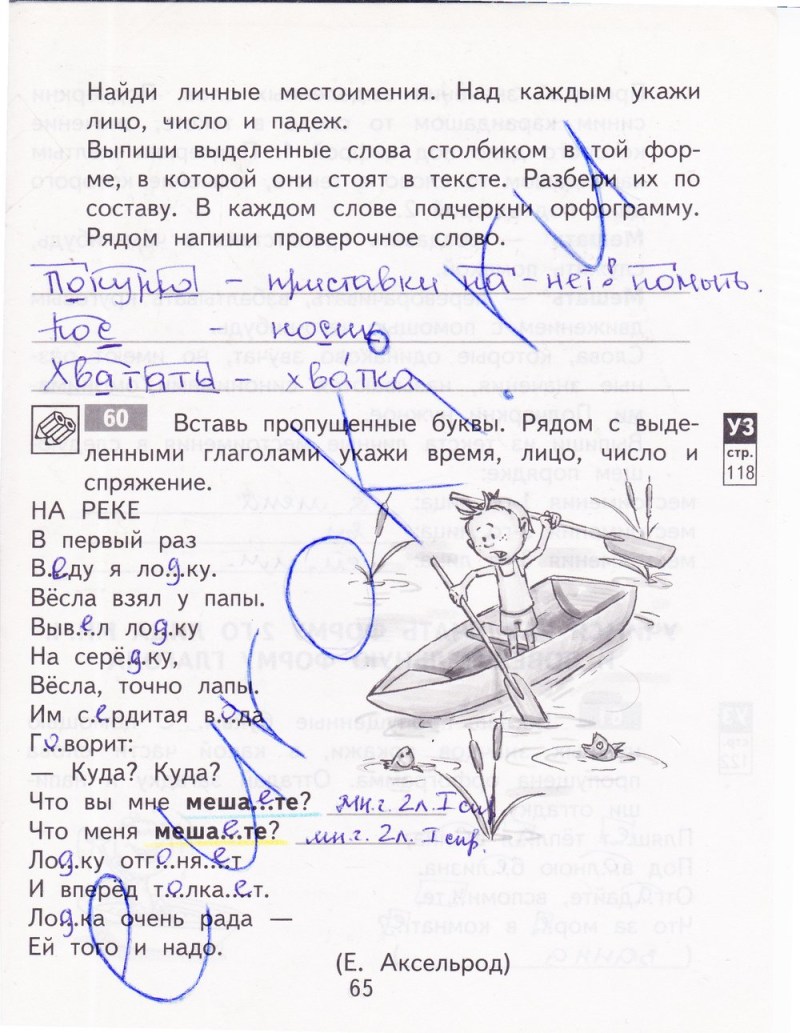 Найди личные местоимения. Над каждым укажи
лицо, число и падеж.
Выпиши выделенные слова столбиком в той фор-
ме, в которой они стоят в тексте. Разбери их по
составу. В каждом слове подчеркни орфограмму.
Рядом напиши проверочное слово.
- приставки па - нет: помыть.
Кос - косить
Хватать хватка
60 Вставь пропущенные буквы. Рядом с выде-
ленными глаголами укажи время, лицо, число и
спряжение.
УЗ
стр.
118
НА РЕКЕ
В первый раз
В.е.ду я ло.д.ку.
Вёсла взял у папы.
Выв.е.л ло.д.ку
На серёд.ку,
Вёсла, точно лапы.
Им с.е.рдитая в.о.да
Г.о.ворит:
– Куда? Куда?
Что вы мне меша.е.те? мн.ч. 2л. I спр.
Что меня меша.е.те? мн.ч. 2л. I спр.
Ло.д.ку отг.о.ня.е.т
И вперёд т.о.лка.е.т.
Ло.д.ка очень рада —
Ей того и надо.
(Е. Аксельрод)
65